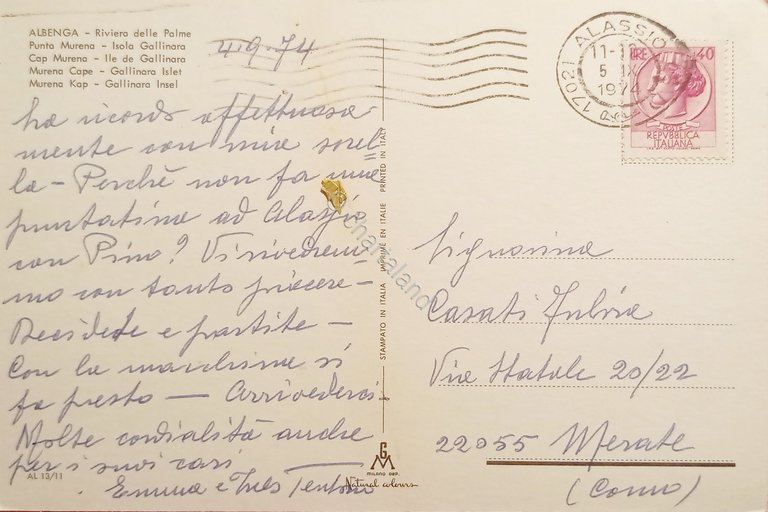 ALBENGA - Riviera delle Palme
Punta Murena - Isola Gallinara
Cap Murena - Ile de Gallinara
Murena Cape - Gallinara Islet
Murena Kap - Gallinara Insel
4.9.74
La ricordo affettuosa
mente con mia sorel=
la - Perchè non fa una
puntatina ad Alassio
con Pino? Vi rivedrem
mo con tanto piacere -
Decidete e partite -
Con la macchina si
fa presto - Arrivederci -
Molte cordialità anche
per i suoi cari
Emma e Ines
AL 13/11
STAMPATO IN ITALIA IMPRIMÉ EN ITALIE PRINTED IN ITALY
GM
MILANO DEP.
Natural colours
17021 ALASSIO
5 IX
1974
LIRE 40
POSTE
REPVBBLICA
ITALIANA
Signorina
Casati Fulvia
Via Statale 20/22
22055 Merate
(Como)